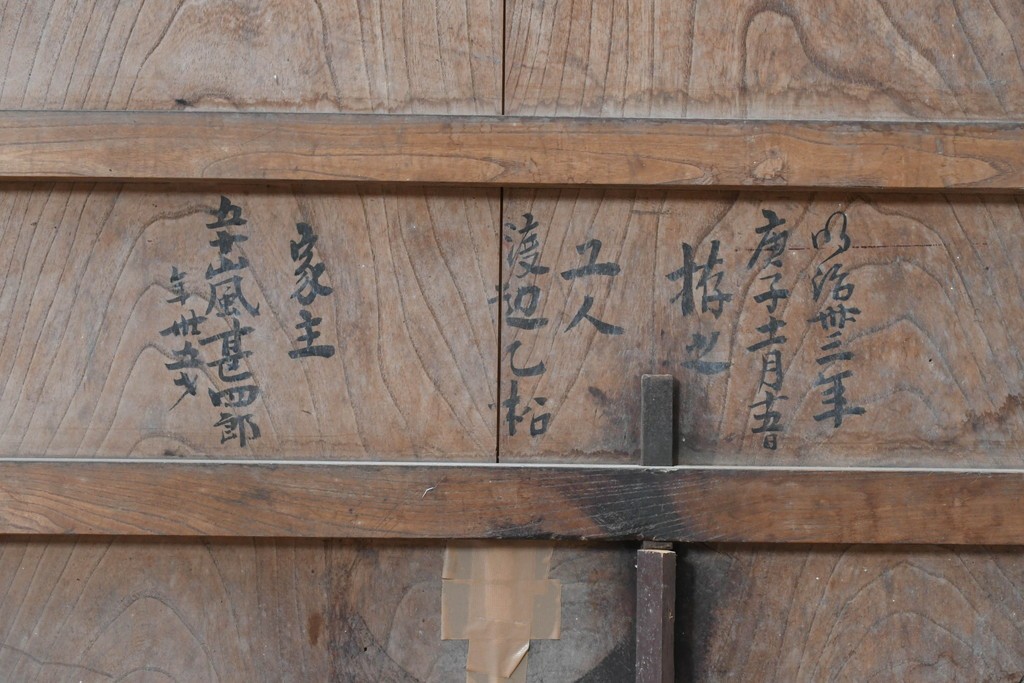 明治卅三年
庚子十一月十五日
拵之
工人
渡辺乙松
家主
五十嵐甚四郎
年卅五才